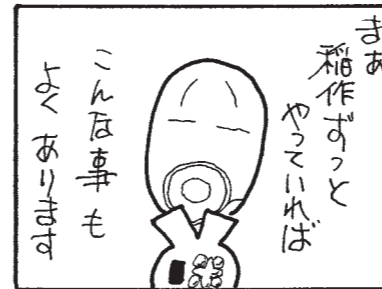 まあ
稲作ずっと
やっていれば
こんな事も
よくあります